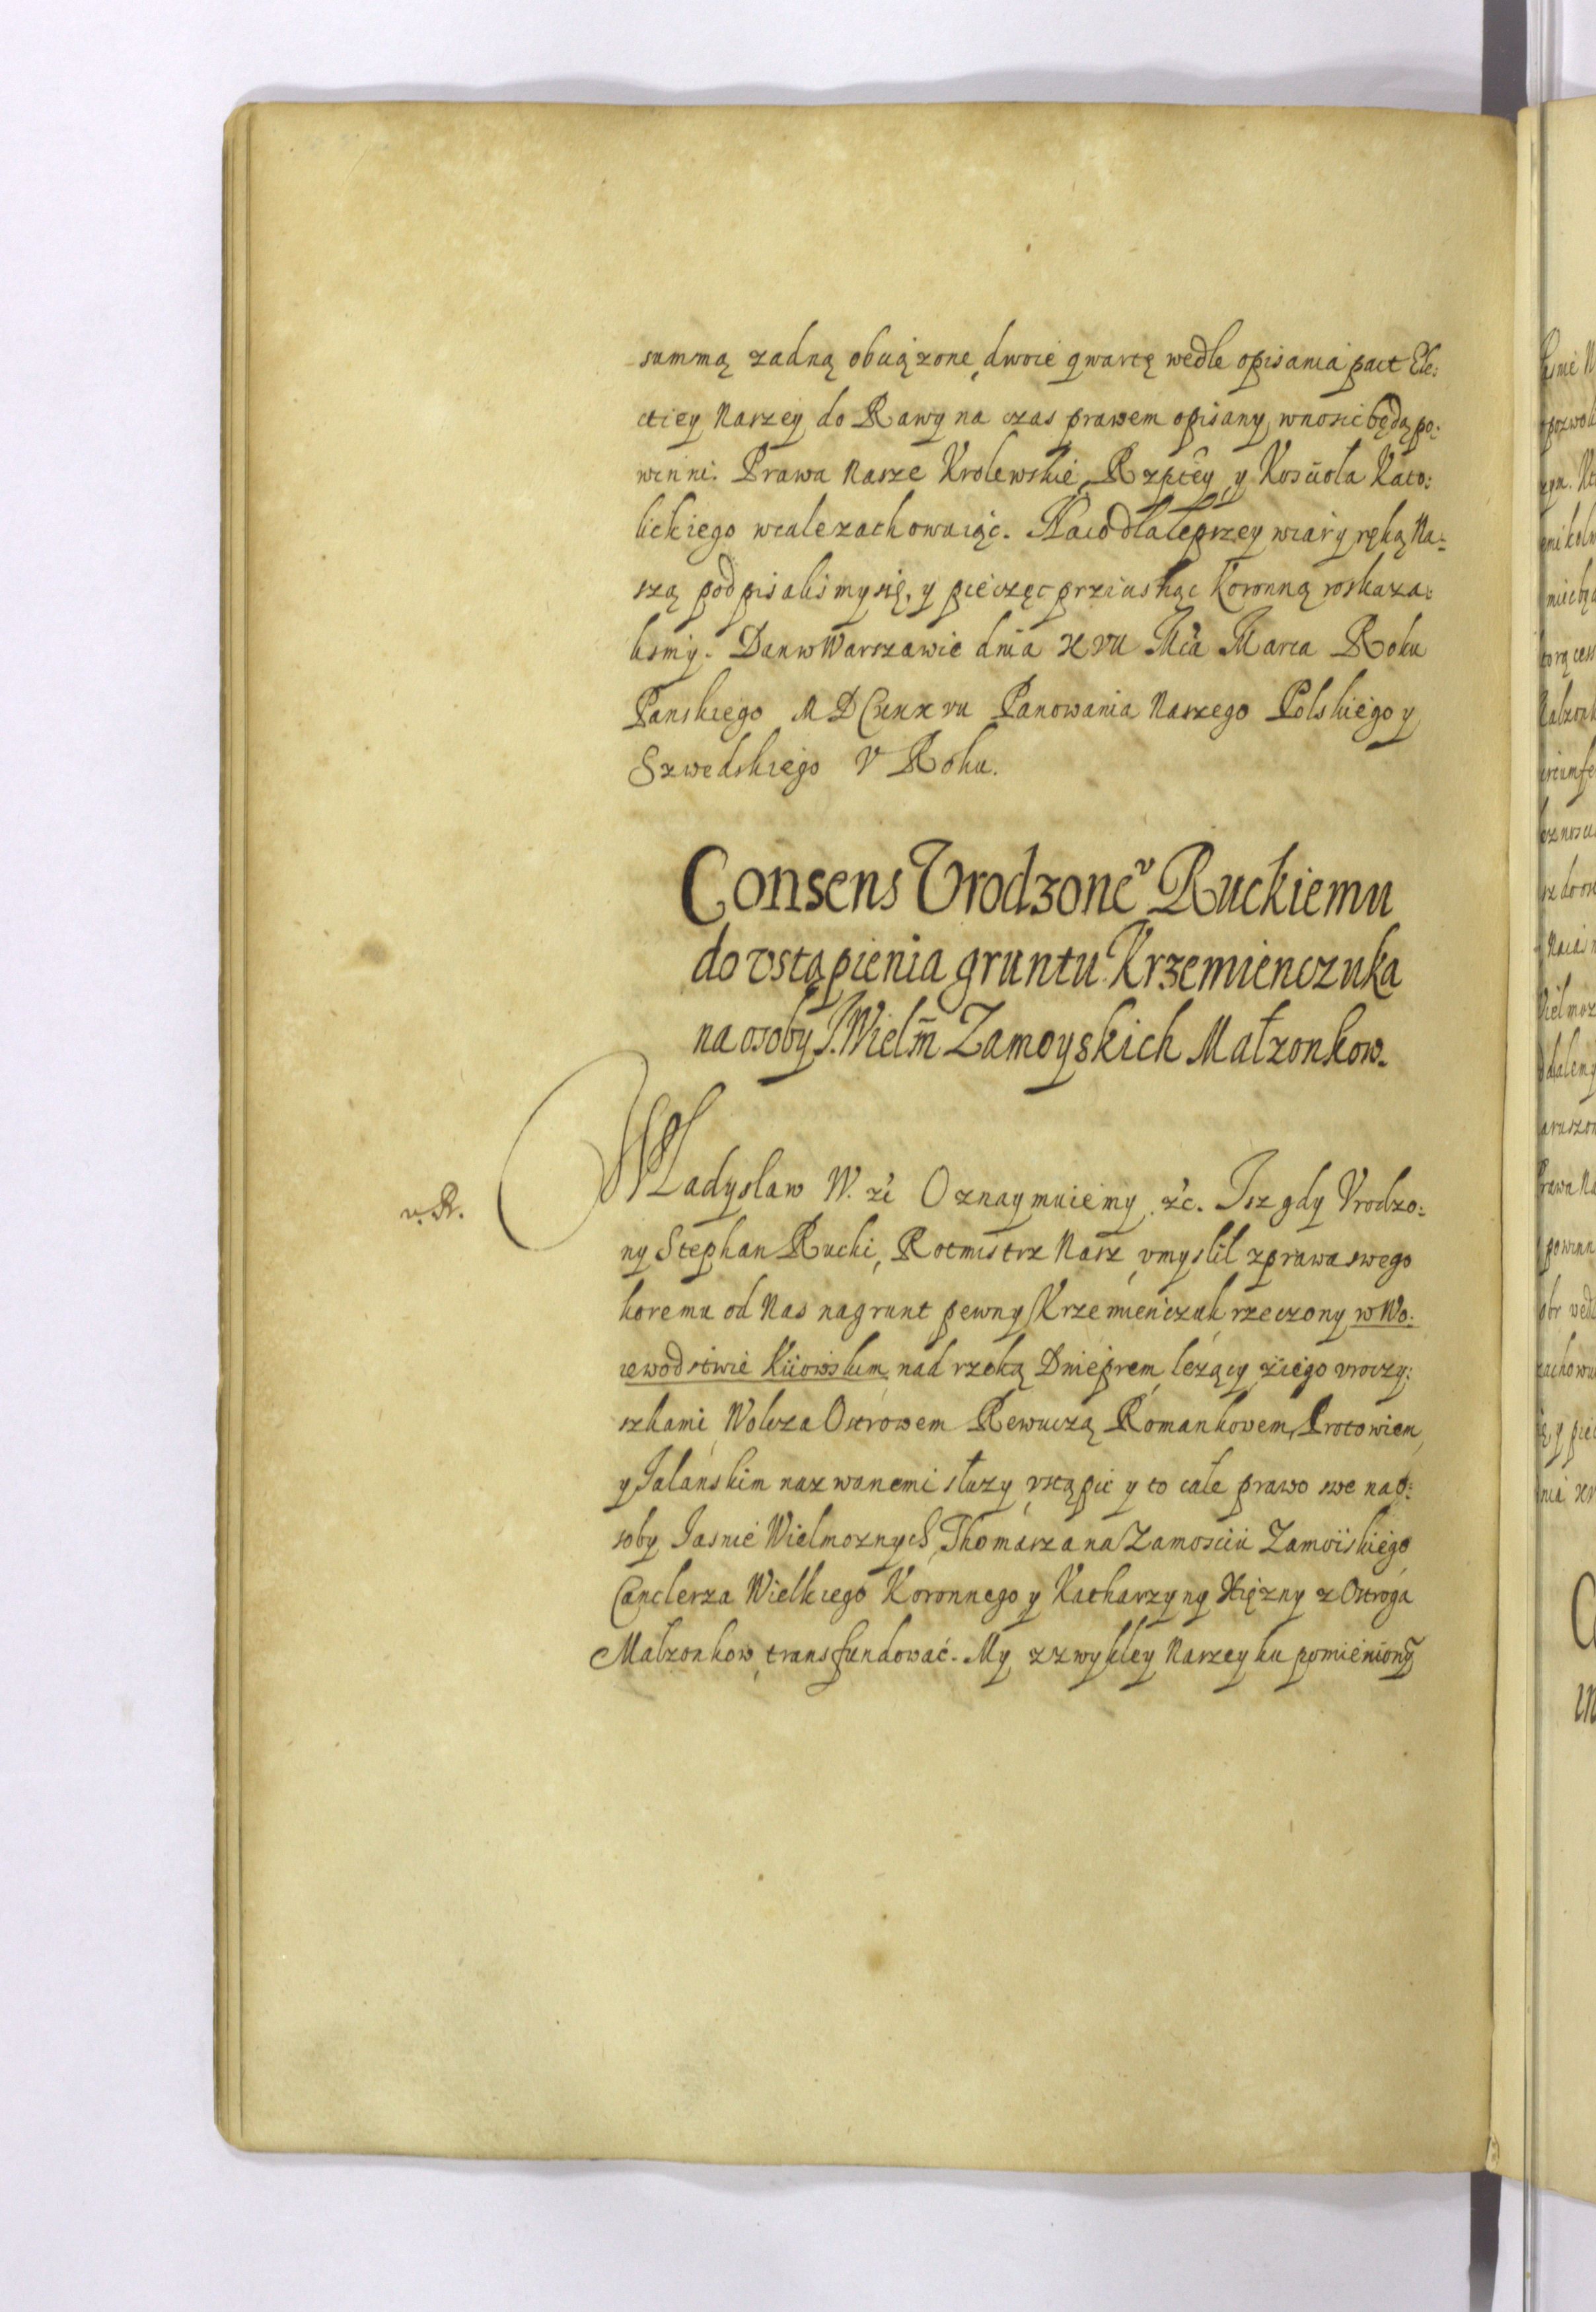 summą zadną obciązone, dwoie qwartę wedle opisania pact Ele:
ctiey Naszey do Rawy na czas prawem opisany, wnosic będą po:
winni. Prawa Nasze Krolewskie, Rzptey, y Kosciola Kato:
lickiego wcale zachowuiąc. Na co dla lepszey wiary ręką Na:
szą podpisalismy się, y pieczęc przicisnąc Koronną roskaza:
lismy. Dan w Warszawie dnia XVII Mca Marca Roku
Panskiego MDCXXXVII Panowania Naszego Polskiego y
Szwedskiego V Roku.
Consens Vrodzonev Ruckiemu
do vstąpienia gruntu Krzemienczuka
na osoby J. Wielm Zamoyskich Małzonkow.
WLadyslaw W. zc Oznaymuiemy zc. Isz gdy Vrodzo:
ny Stephan Rucki, Rotmistrz Nasz, vmyslil z prawa swego
ktoremu od Nas na grunt pewny Krzemieńczuk rzeczony w Wo:
iewodstwie Kiiowskim, nad rzeką Dnieprem lezący z iego vroczy:
szkami, Wolcza Ostrowem Rewuczą Romankovem, Protowiem,
y Jalanskim nazwanemi słuzy, vstąpic y to całe prawo swe na o:
soby Jasnie Wielmoznych, Thomasza na Zamosciu Zamoiskiego
Canclerza Wielkiego Koronnego y Katharzyny Xiężny z Ostroga
Malzonkow, transfundować. My z zwykley Naszey ku pomienionÿ
v. R.